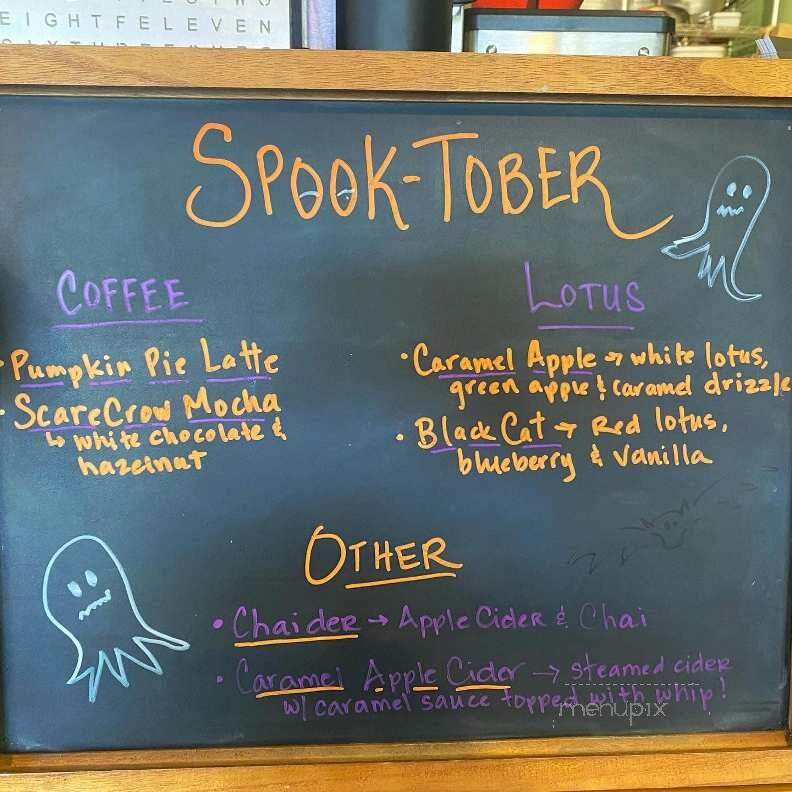 EIGHTFELEVEN
SPOOK-TOBER
COFFEE
• Pumpkin Pie Latte
• ScareCrow Mocha
↳ white chocolate &
hazelnut
LOTUS
• Caramel Apple → white lotus,
green apple & caramel drizzle
• Black Cat → Red lotus,
blueberry & vanilla
OTHER
• Chaider → Apple Cider & Chai
• Caramel Apple Cider → steamed cider
w/ caramel sauce topped with whip!
menupix